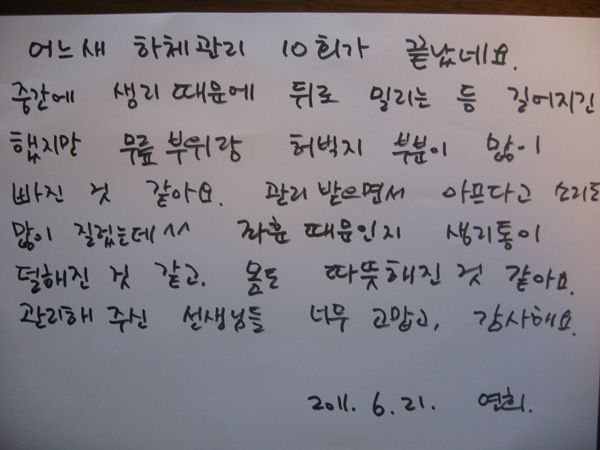 어느새 하체관리 10회가 끝났네요.
중간에 생리 때문에 뒤로 밀리는 등 길어지긴
했지만 무릎 부위랑 허벅지 부분이 많이
빠진 것 같아요. 관리 받으면서 아프다고 소리도
많이 질렀는데^^ 좌훈 때문인지 생리통이
덜해진 것 같고, 몸도 따뜻해진 것 같아요.
관리해 주신 선생님들 너무 고맙고, 감사해요.
2011. 6. 21. 연희.